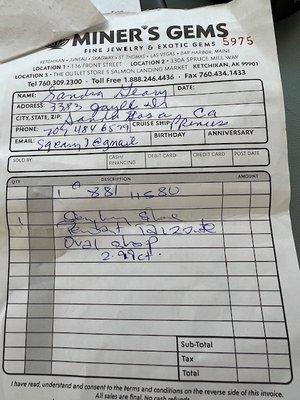 MINER'S GEMS
FINE JEWELRY & EXOTIC GEMS 5975
KETCHIKAN • JUNEAU • SKAGWAY • ST THOMAS • LAS VEGAS • BAR HARBOR, MAINE
LOCATION 1 • 116 FRONT STREET LOCATION 2 • 330A SPRUCE MILL WAY
LOCATION 3 • THE OUTLET STORE 5 SALMON LANDING MARKET KETCHIKAN, AK 99901
Tel 760.309.2300 Toll Free 1.888.246.4436 Fax 760.434.1433
NAME: Sandra DATE:
ADDRESS: 3383
CITY, STATE, ZIP: Santa Rosa Ca
PHONE: 707 484 6579 CRUISE SHIP: Princess
EMAIL: @gmail BIRTHDAY ANNIVERSARY
SOLD BY CASH/FINANCING DEBIT CARD CREDIT CARD POST DATE
QTY DESCRIPTION AMOUNT
881 11580
1 Ceylon Blue
Oval shap
2.99ct.
Sub-Total
Tax
Total
I have read, understand and consent to the terms and conditions on the reverse side of this invoice.
All sales are final. No cash refunds